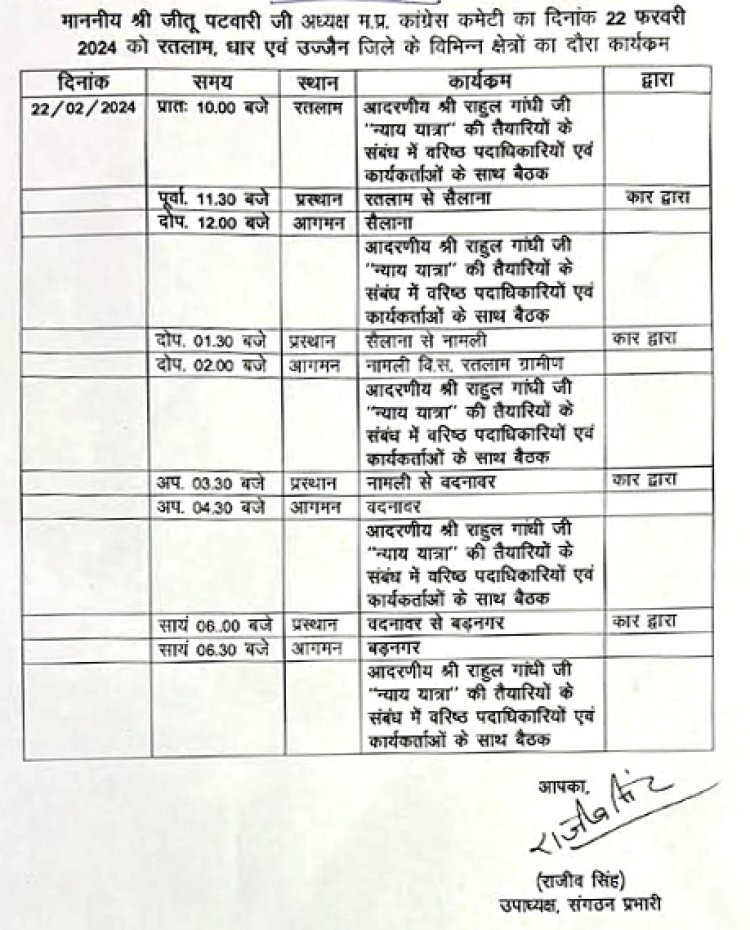 माननीय श्री जीतू पटवारी जी अध्यक्ष म.प्र. कांग्रेस कमेटी का दिनांक 22 फरवरी
2024 को रतलाम, धार एवं उज्जैन जिले के विभिन्न क्षेत्रों का दौरा कार्यक्रम
दिनांक समय स्थान कार्यकम द्वारा
22/02/2024 प्रातः 10.00 बजे रतलाम आदरणीय श्री राहुल गांधी जी
"न्याय यात्रा" की तैयारियों के
संबंध में वरिष्ठ पदाधिकारियों एवं
कार्यकर्ताओं के साथ बैठक
पूर्वा. 11.30 बजे प्रस्थान रतलाम से सैलाना कार द्वारा
दोप. 12.00 बजे आगमन सैलाना
आदरणीय श्री राहुल गांधी जी
"न्याय यात्रा" की तैयारियों के
संबंध में वरिष्ठ पदाधिकारियों एवं
कार्यकर्ताओं के साथ बैठक
दोप. 01.30 बजे प्रस्थान सैलाना से नामली कार द्वारा
दोप. 02.00 बजे आगमन नामली वि.स. रतलाम ग्रामीण
आदरणीय श्री राहुल गांधी जी
"न्याय यात्रा" की तैयारियों के
संबंध में वरिष्ठ पदाधिकारियों एवं
कार्यकर्ताओं के साथ बैठक
अप. 03.30 बजे प्रस्थान नामली से वदनावर कार द्वारा
अप. 04.30 बजे आगमन वदनावर
आदरणीय श्री राहुल गांधी जी
"न्याय यात्रा" की तैयारियों के
संबंध में वरिष्ठ पदाधिकारियों एवं
कार्यकर्ताओं के साथ बैठक
सायं 06..00 बजे प्रस्थान वदनावर से बड़नगर कार द्वारा
सायं 06.30 बजे आगमन बड़नगर
आदरणीय श्री राहुल गांधी जी
"न्याय यात्रा" की तैयारियों के
संबंध में वरिष्ठ पदाधिकारियों एवं
कार्यकर्ताओं के साथ बैठक
आपका,
राजीव सिंह
(राजीव सिंह)
उपाध्यक्ष, संगठन प्रभारी